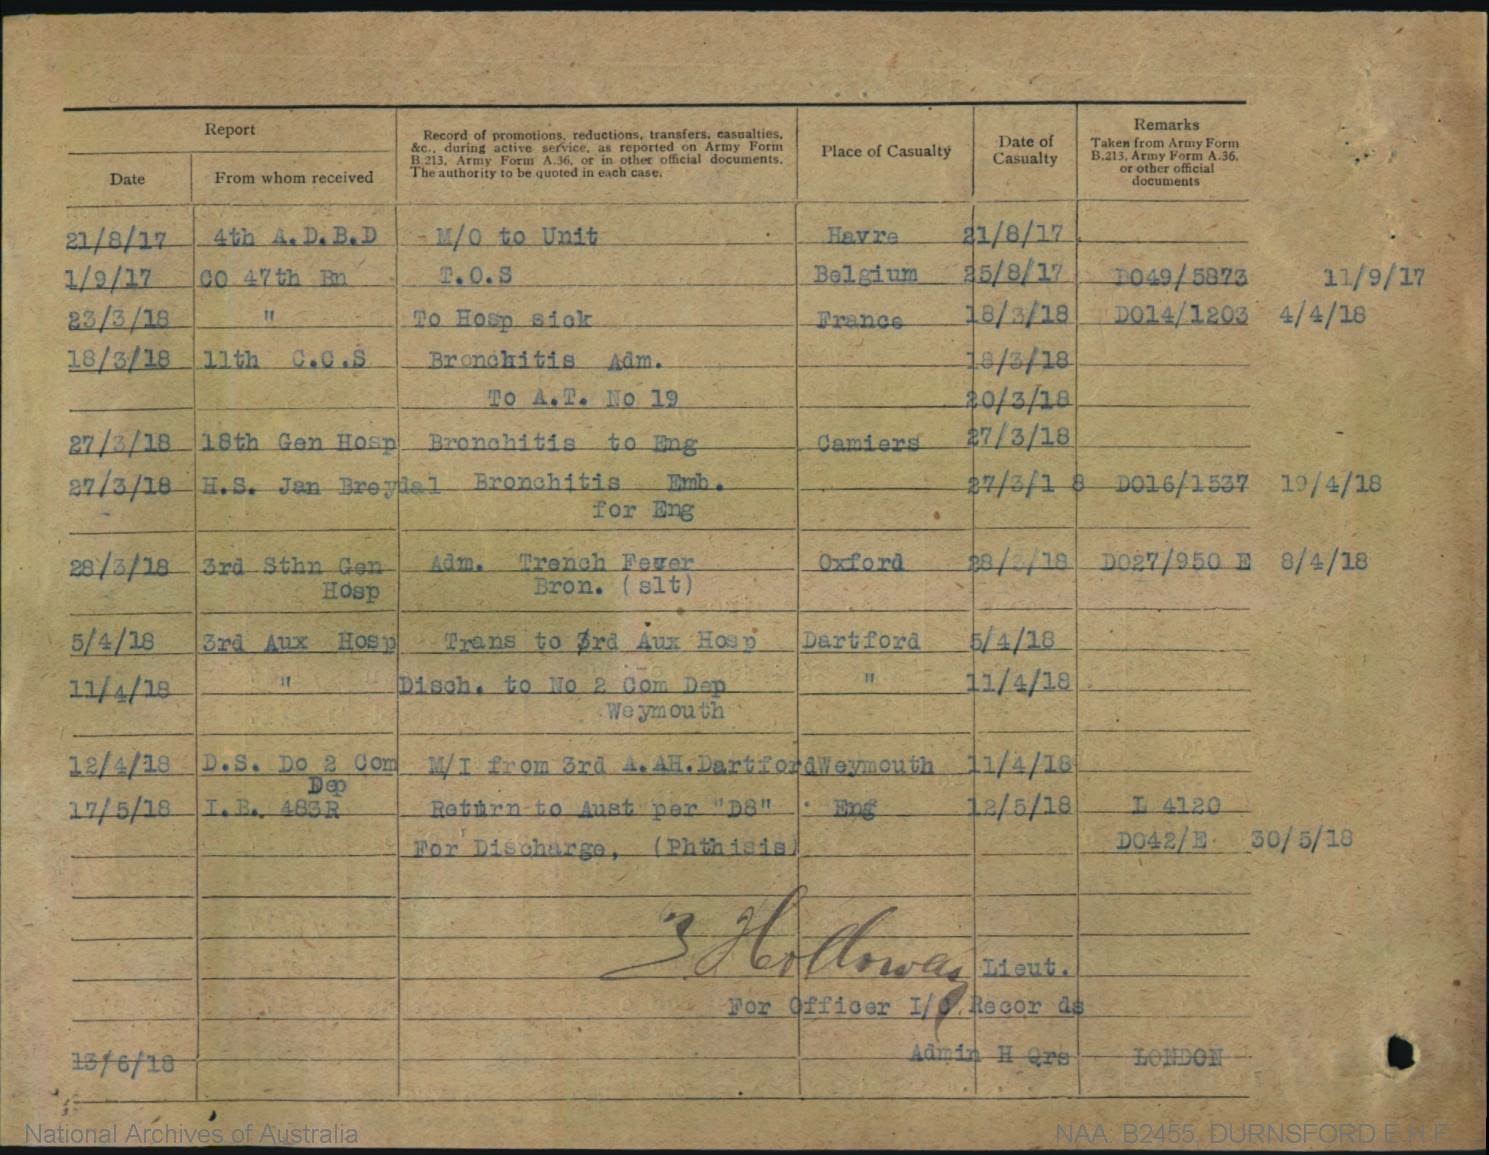 Report
Record of promotions, reductions, transfers, casualties,
&c., during active service, as reported on Army Form
B.213, Army Form A.36, or in other official documents.
The authority to be quoted in each case.
Place of Casualty
Date of
Casualty
Remarks
Taken from Army Form
B.213, Army Form A.36,
or other official
documents
Date From whom received
21/8/17 4th A.D.B.D - M/O to Unit Havre 21/8/17
1/9/17 CO 47th Bn T.O.S Belgium 25/8/17 DO49/5873 11/9/17
23/3/18 " To Hosp sick France 18/3/18 DO14/1203 4/4/18
18/3/18 11th C.C.S Bronchitis Adm. 18/3/18
To A.T. No 19 20/3/18
27/3/18 18th Gen Hosp Bronchitis to Eng Camiers 27/3/18
27/3/18 H.S. Jan Breydal Bronchitis Emb. 27/3/1 8 DO16/1537 19/4/18
for Eng
28/3/18 3rd Sthn Gen Adm. Trench Fever Oxford 28/3/18 DO27/950 E 8/4/18
Hosp Bron. (slt)
5/4/18 3rd Aux Hosp Trans to 3rd Aux Hosp Dartford 5/4/18
11/4/18 " Disch. to No 2 Com Dep " 11/4/18
Weymouth
12/4/18 D.S. Do 2 Com M/I from 3rd A.AH.Dartford Weymouth 11/4/18
Dep
17/5/18 I.B. 483R Return to Aust per "D8" Eng 12/5/18 L 4120
For Discharge, (Phthisis) DO42/E 30/5/18
Holloway Lieut.
For Officer I/C Recor ds
13/6/18 Admin H Qrs LONDON
National Archives of Australia
NAA: B2455, DURNSFORD E H F